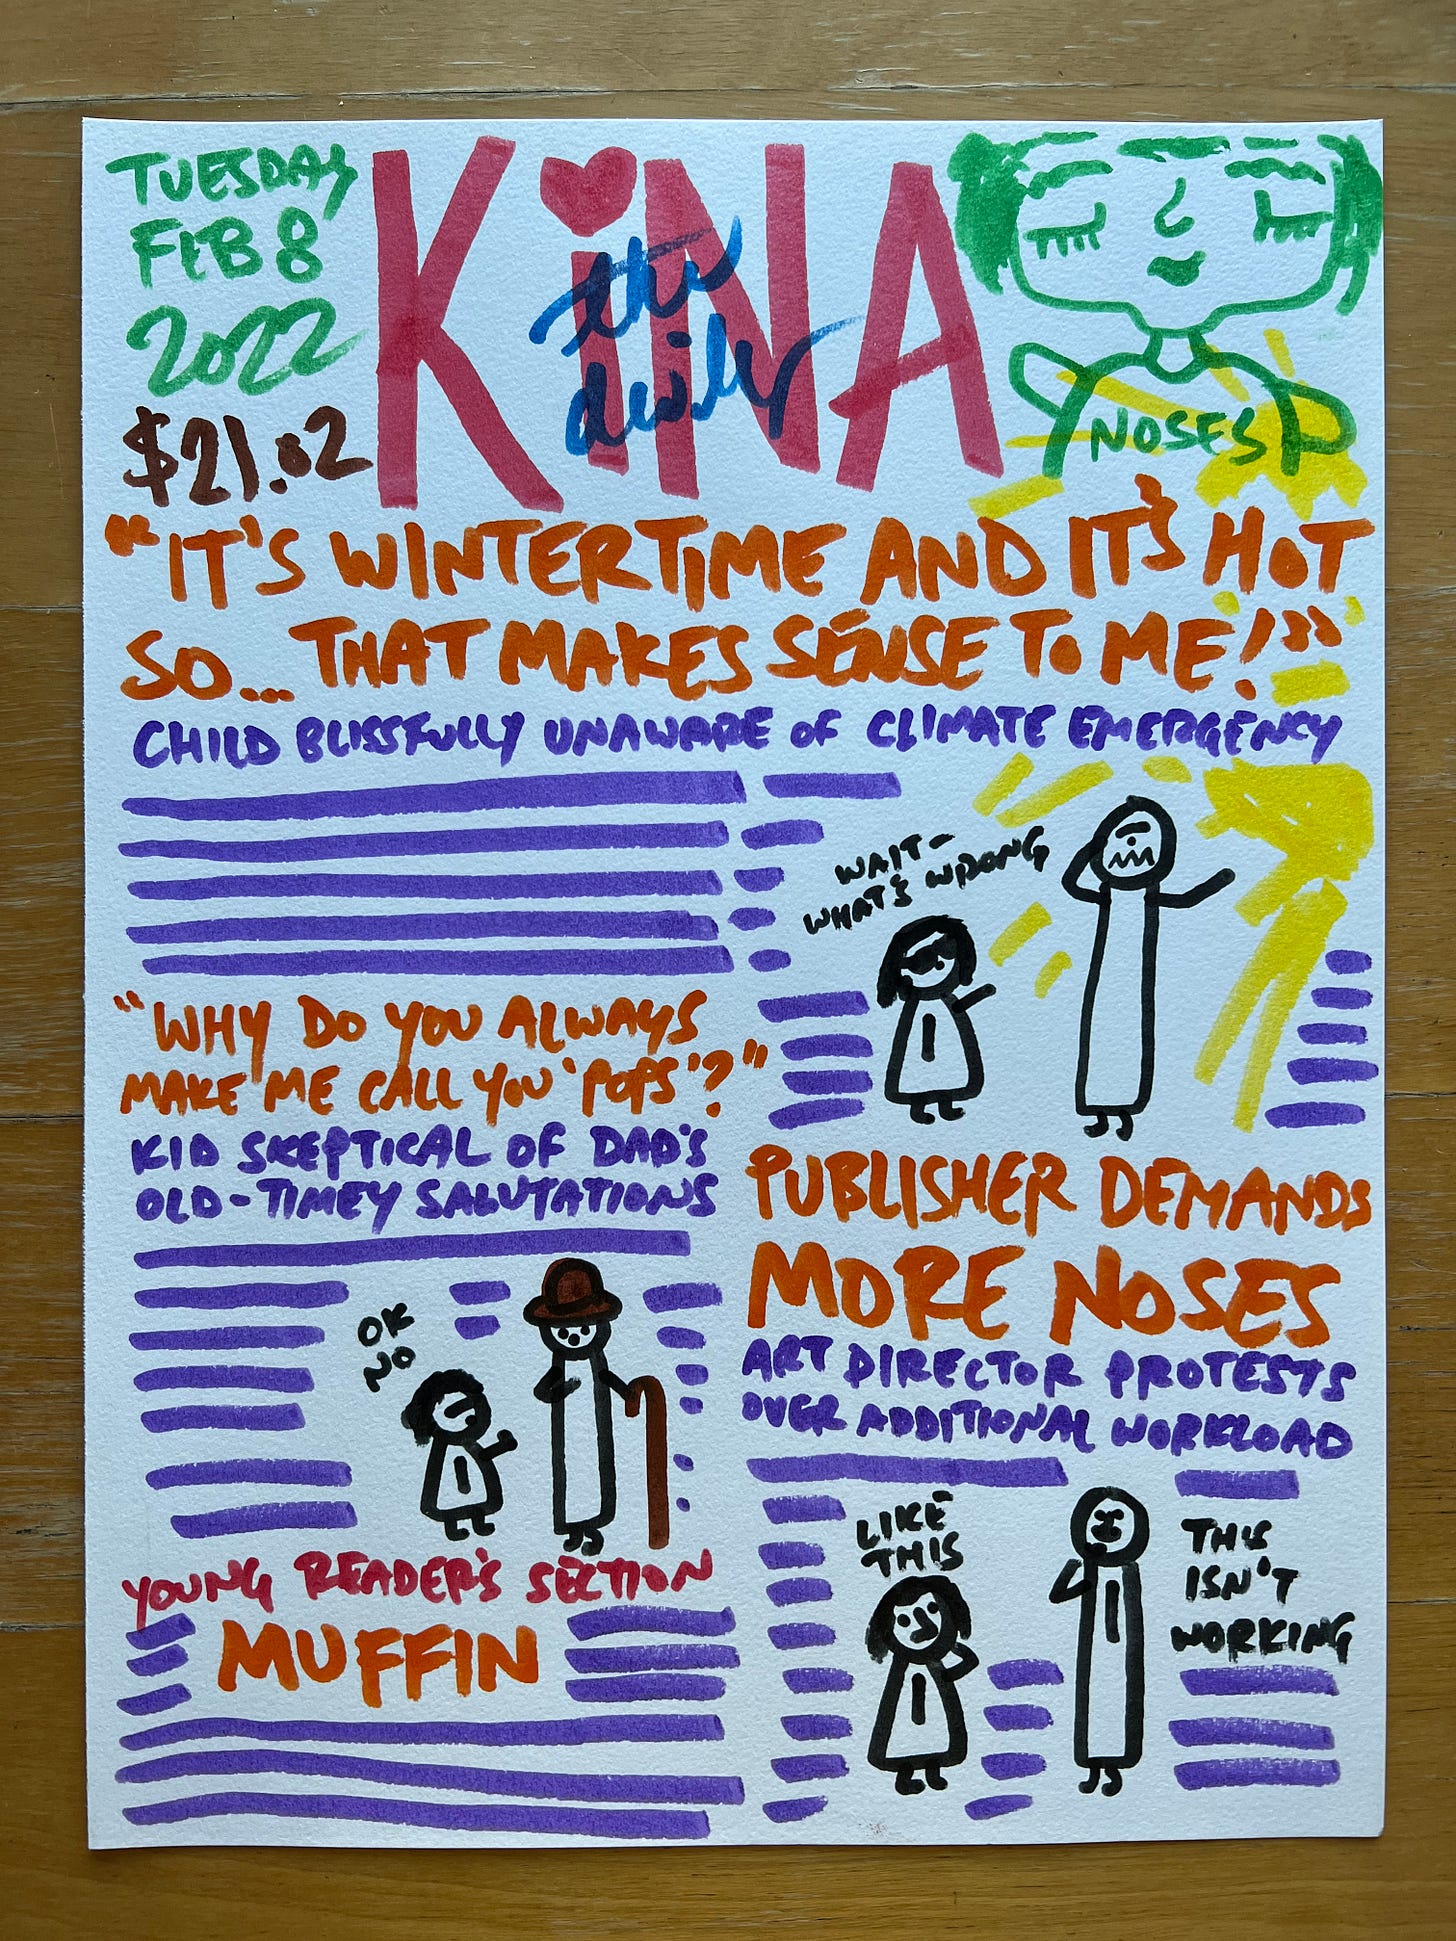 TUESDAY
FEB 8
2022
$21.02
KiNA
the
daily
NOSES
"IT'S WINTERTIME AND IT'S HOT
SO... THAT MAKES SENSE TO ME!"
CHILD BLISSFULLY UNAWARE OF CLIMATE EMERGENCY
WAIT-
WHAT'S WRONG
"WHY DO YOU ALWAYS
MAKE ME CALL YOU 'POPS'?"
KID SKEPTICAL OF DAD'S
OLD-TIMEY SALUTATIONS
OK
NO
PUBLISHER DEMANDS
MORE NOSES
ART DIRECTOR PROTESTS
OVER ADDITIONAL WORKLOAD
LIKE
THIS
THIS
ISN'T
WORKING
YOUNG READER'S SECTION
MUFFIN